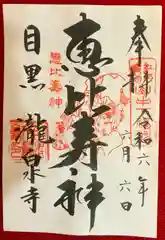 奉拝
令和六年
六月六日
恵比寿神
恵比寿神
目黒
瀧泉寺